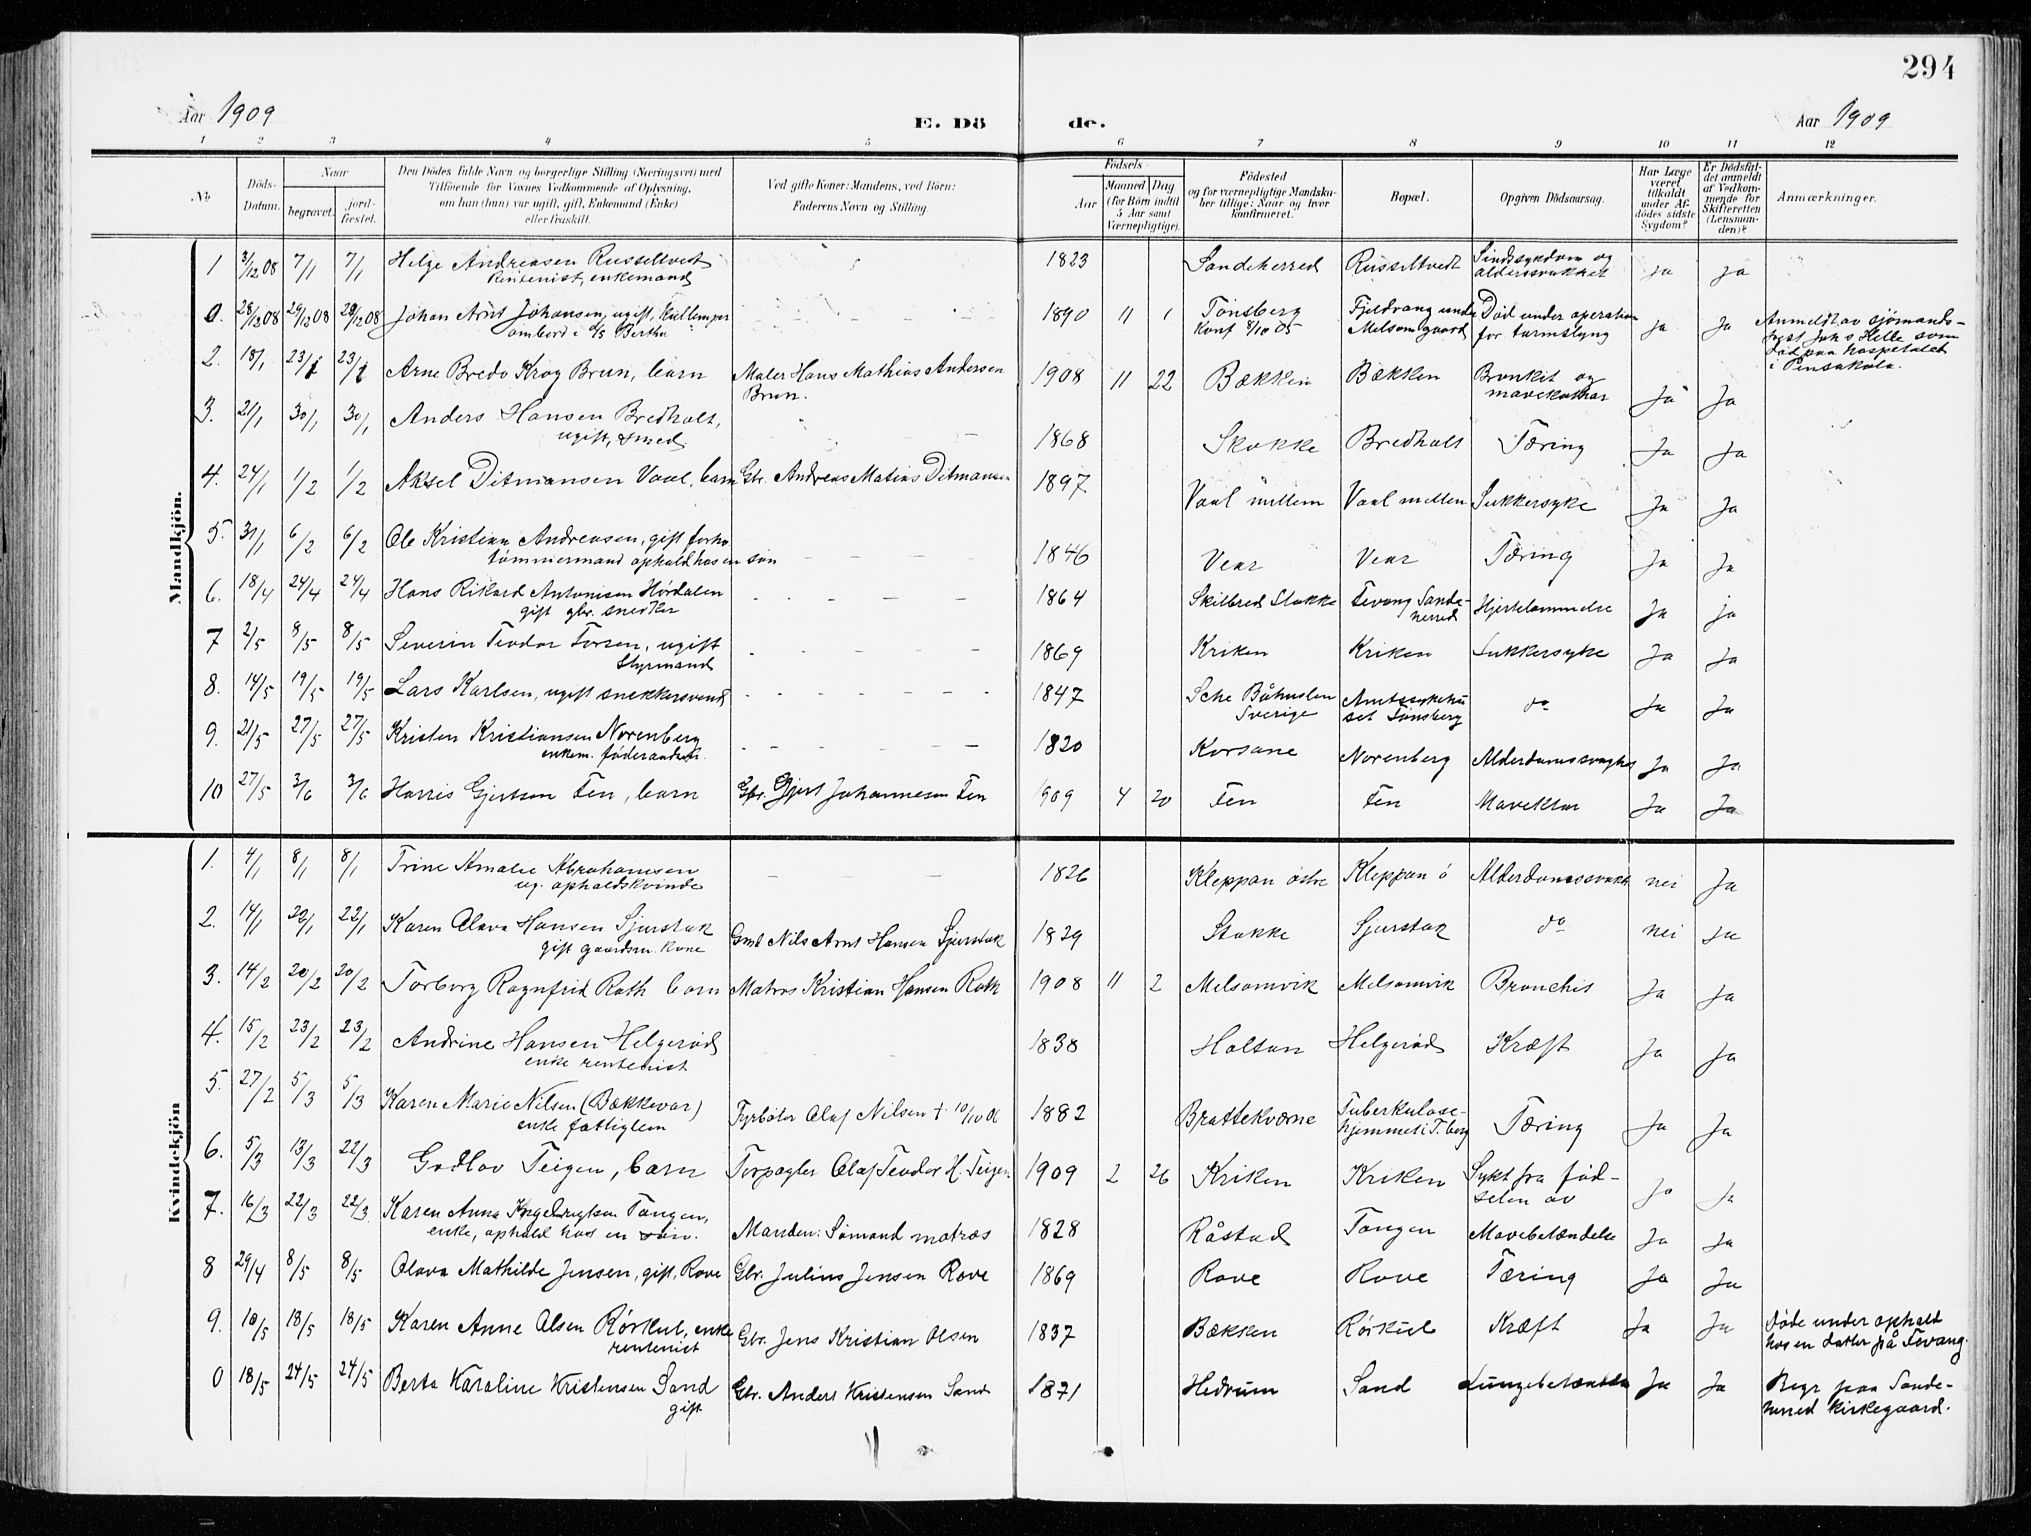 294
Aar 1909 E. Dö de. Aar 1909
1 2 3 4 5 6 7 8 9 10 11 12
No Döds-Datum. Naar begravet. jord-fæstet. Den Dödes fulde Navn og borgerlige Stilling (Næringsvei) med Tilföiende for Voxnes Vedkommende af Oplysning, om han (hun) var ugift, gift, Enkemand (Enke) eller fraskilt. Ved gifte Koner: Mandens, ved Börn: Faderens Navn og Stilling. Födsels Aar Maaned Dag (for Börn indtil 5 Aar samt Værnepligtige). Födested og for værnepligtige Mandskaber tillige: Naar og hvor konfirmeret. Bopæl. Opgiven Dödsaarsag. Har Læge været tilkaldt under Afdödes sidste Sygdom? Er Dödsfaldet anmeldt af Vedkommende for Skifteretten (Lensmanden)? Anmærkninger.
Mandkjön.
1 3/12 08 7/1 7/1 Helge Andreasen Russeltvedt 1823 Sandeherred Russeltvedt Sindssykdom og
Rentenist, enkemand alderssvakhet ja ja
0. 28/12 08 29/12 08 29/12 08 Johan Arnt Johansen, ugift, Kullemper 1890 11 1 Tønsberg Fjeldvang under Død under operation
ombord i d/s Bertha konf 1/10 05 Melsom gaard for tarmslyng ja Ja Anmeldt av sjømands-
prest Johs Helle som
død paa hospitalet
i Pensakola.
2. 18/1 23/1 23/1 Arne Bredo Krog Brun, barn Maler Hans Mathias Andersen 1908 11 22 Bækken Bækken Bronkit og
Brun. mavekathar Ja Ja
3. 21/1 30/1 30/1 Anders Hansen Bredholt,
ugift, smed 1868 Stokke Bredholt Tæring Ja Ja
4. 24/1 1/2 1/2 Aksel Ditmansen Vaal, barn Gbr. Andreas Matias Ditmansen 1897 Vaal mellem Vaal mellem Sukkersyke Ja Ja
5. 31/1 6/2 6/2 Ole Kristian Andreasen, gift forhv.
tømmermand ophold hos en søn 1846 Vear Vear Tæring Ja Ja
6. 18/4 24/4 24/4 Hans Rikard Antonisen Hørdalen 1864 Skilbred Stokke Tevang Sande-
gift gbr. snedker herred Hjertelammelse Ja ja
7 2/5 8/5 8/5 Severin Teodor Torsen, ugift 1869 Kriken Kriken Sukkersyke Ja Ja
Styrmand
8. 14/5 19/5 19/5 Lars Karlsen, ugift snekkersvend 1847 Sche Båhuslen Amtssykehu-
Sverige set Tønsberg do Ja Ja
9. 21/5 27/5 27/5 Kristen Kristiansen Norenberg 1820 Korsane Norenberg Alderdomssvaghet Ja Ja
enkem. føderaadsm.
10 27/5 3/6 3/6 Harris Gjertsen Fen, barn Gbr. Gjert Johannesen Fen 909 4 20 Fen Fen Mavektar Ja Ja
Kvindekjön
1. 4/1 8/1 8/1 Trine Amalie Abrahamsen 1826 Kleppan østre Kleppan ø Alderdomssvakh. nei Ja
ug. opholdskvinde
2. 14/1 22/1 22/1 Karen Olava Hansen Sjuestok Gmd Nils Arnt Hansen Sjuestok 1829 Stokke Sjuestok do nei Ja
gift gaardm. kone
3. 14/2 20/2 20/2 Torborg Ragnfrid Roth barn Matros Kristian Hansen Roth 1908 11 2 Melsomvik Melsomvik Bronchis Ja Ja
4. 15/2 23/2 23/2 Andrine Hansen Helgerød 1838 Holtan Helgerød Kræft Ja Ja
enke rentenist
5. 27/2 5/3 5/3 Karen Marie Nilsen (Bækkevar) Fyrbøter Olaf Nilsen + 10/10 06 1882 Brattekværne Tuberkulose-
enke fattiglem hjemmet i T.berg Tæring Ja Ja
6. 5/3 13/3 22/3 Godlov Teigen, barn Torpagter Olaf Teodor H. Teigen 1909 2 26 Kriken Kriken Sykt fra fød-
selen av Ja Ja
7. 16/3 22/3 22/3 Karen Anna Ingebrigtsen Tangen,
enke, ophold hos en søn. Manden: Sømand matros 1828 Råstad Tangen Mavebetændelse Ja Ja
8 29/4 8/5 8/5 Olava Mathilde Jensen, gift, Rove Gbr. Julius Jensen Rove 1869 Rove Rove Tæring Ja Ja
9. 10/5 18/5 18/5 Karen Anne Olsen Rørkul, enke Gbr. Jens Kristian Olsen 1837 Bækken Rørkul Kræft Ja Ja Døde under ophold
rentenist hos en datter på Tevang.
0 18/5 24/5 24/5 Berta Karoline Kristensen Sand Gbr. Anders Kristensen Sand 1871 Hedrum Sand Lungebetændelse Ja Ja Begr paa Sande-
gift herred kirkegaard.